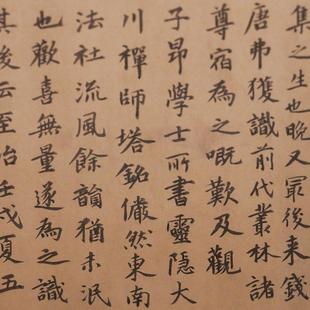 集之生也晚又最後来錢
唐弗獲識前代叢林諸
尊宿為之嘅歎及觀
子昂學士所書靈隱大
川禪師塔銘儼然東南
法社流風餘韻猶未泯
也歡喜無量遂為之識
其後云至治壬戌夏五